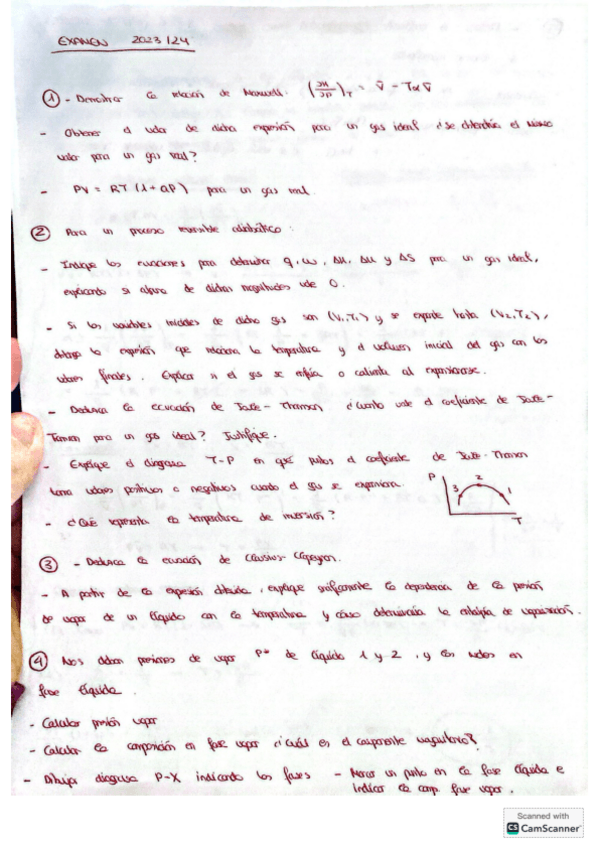 EXAMEN 2023/24
① - Demostrar la relación de Maxwell: (∂H/∂P)T = V̄ - TαV̄
- Obtener el valor de dicha expresión para un gas ideal ¿se obtendría el mismo
valor para un gas real?
- PV = RT (1+aP) para un gas real
② Para un proceso reversible adiabático:
- Indique las ecuaciones para determinar q, w, ΔH, ΔU y ΔS para un gas ideal,
explicando si alguna de dichas magnitudes vale 0.
- Si las variables iniciales de dicho gas son (V₁,T₁) y se expande hasta (V₂,T₂),
obtenga la expresión que relaciona la temperatura y el volumen inicial del gas con los
valores finales. Explicar si el gas se enfría o calienta al expansionarse.
- Deduzca la ecuación de Joule-Thomson ¿Cuánto vale el coeficiente de Joule-
Thomson para un gas ideal? Justifique.
- Explique el diagrama T-P en qué puntos el coeficiente de Joule-Thomson
toma valores positivos o negativos cuando el gas se expansiona.
P
3 2 1
T
- ¿Qué representa la temperatura de inversión?
③ - Deduzca la ecuación de Clausius-Clapeyron.
- A partir de la expresión obtenida, explique gráficamente la dependencia de la presión
de vapor de un líquido con la temperatura y cómo determinaría la entalpía de vaporización.
④ Nos daban presiones de vapor P* de líquido 1 y 2, y los moles en
fase líquida.
- Calcular presión vapor
- Calcular la composición en fase vapor ¿Cuál es el componente mayoritario?
- Dibuja diagrama P-X indicando las fases - Marcar un punto en la fase líquida e
indicar la comp. fase vapor.
Scanned with
CS CamScanner